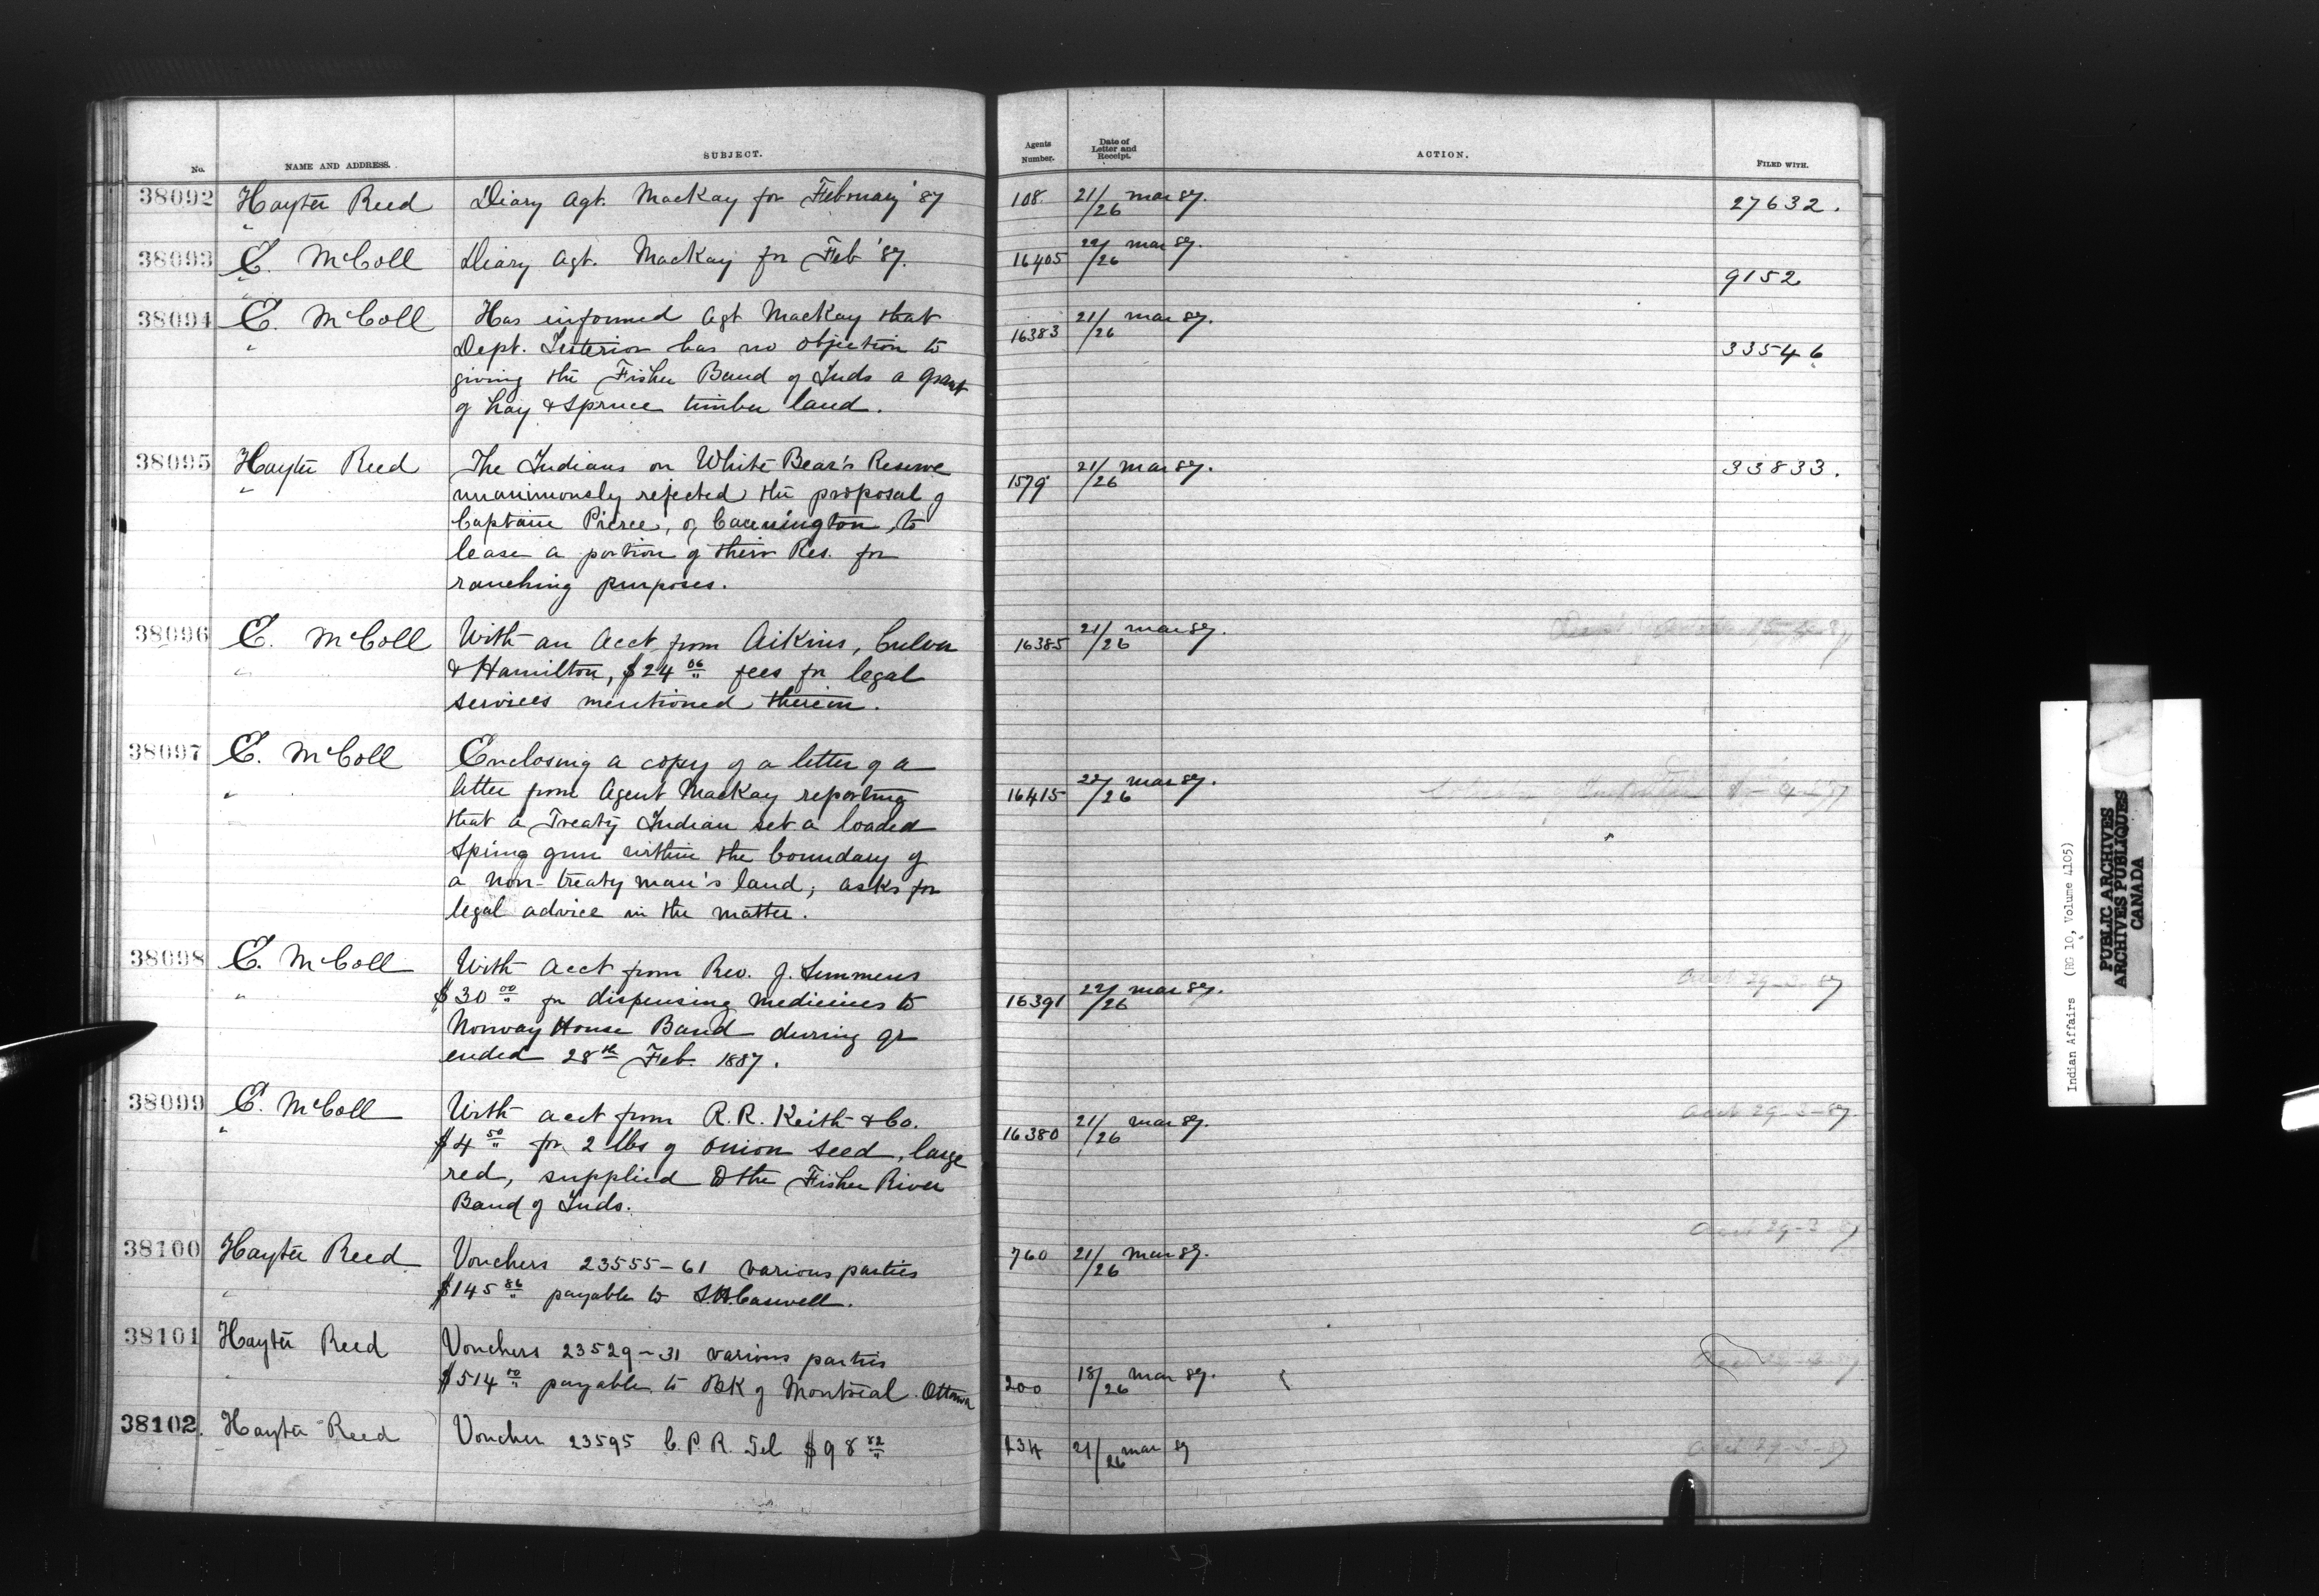 No. NAME AND ADDRESS. SUBJECT. Agents Number. Date of Letter and Receipt. ACTION. FILED WITH.
38092 Hayter Reed Diary Agt. MacKay for February '87 108. 21/26 Mar 87. 27632.
"
38093 E. McColl Diary Agt. MacKay for Feb '87. 16405 22/26 Mar 87. 9152
"
38094 E. McColl Has informed Agt MacKay that 16383 21/26 Mar 87. 33546
" Dept. Interior has no objection to
giving the Fisher Band of Inds a grant
of hay & spruce timber land.
38095 Hayter Reed The Indians on White Bear's Reserve 1579 21/26 Mar 87. 33833.
" unanimously rejected the proposal of
Captain Pierce, of Cannington, to
lease a portion of their Res. for
ranching purposes.
38096 E. McColl With an Acct from Aikins, Culver 16385 21/26 Mar 87.
" & Hamilton, $24 06 fees for legal
services mentioned therein.
38097 E. McColl Enclosing a copy of a letter of a
" letter from Agent MacKay reporting 16415 22/26 Mar 87.
" that a Treaty Indian set a loaded
spring gun within the boundary of
a non-treaty man's land; asks for
legal advice in the matter.
38098 E. McColl With Acct from Rev. J. Semmens Acct 29-3-87
" $30 00 for dispensing medicines to 16391 22/26 Mar 87.
Norway House Band during qr
ended 28th Feb. 1887.
38099 E. McColl With acct from R.R. Keith & Co. 16380 21/26 Mar 87. Acct 29-3-87.
" $4 50 for 2 lbs of onion seed, large
red, supplied to the Fisher River
Band of Inds.
38100 Hayter Reed Vouchers 23555-61 various parties 760 21/26 Mar 87. Acct 29-3-87
" $145 86 payable to Caswell.
38101 Hayter Reed Vouchers 23529-31 various parties
" $514 payable to BK of Montreal. Ottawa 200 18/26 Mar 87.
38102. Hayter Reed Voucher 23595 C.P.R. Tel $98 82 234 21/26 Mar 87 Acct 29-3-87
Indian Affairs (RG 10, Volume 4105)
PUBLIC ARCHIVES
ARCHIVES PUBLIQUES
CANADA